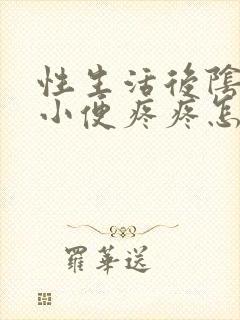 性生活後陰
小便疼疼怎
羅華送